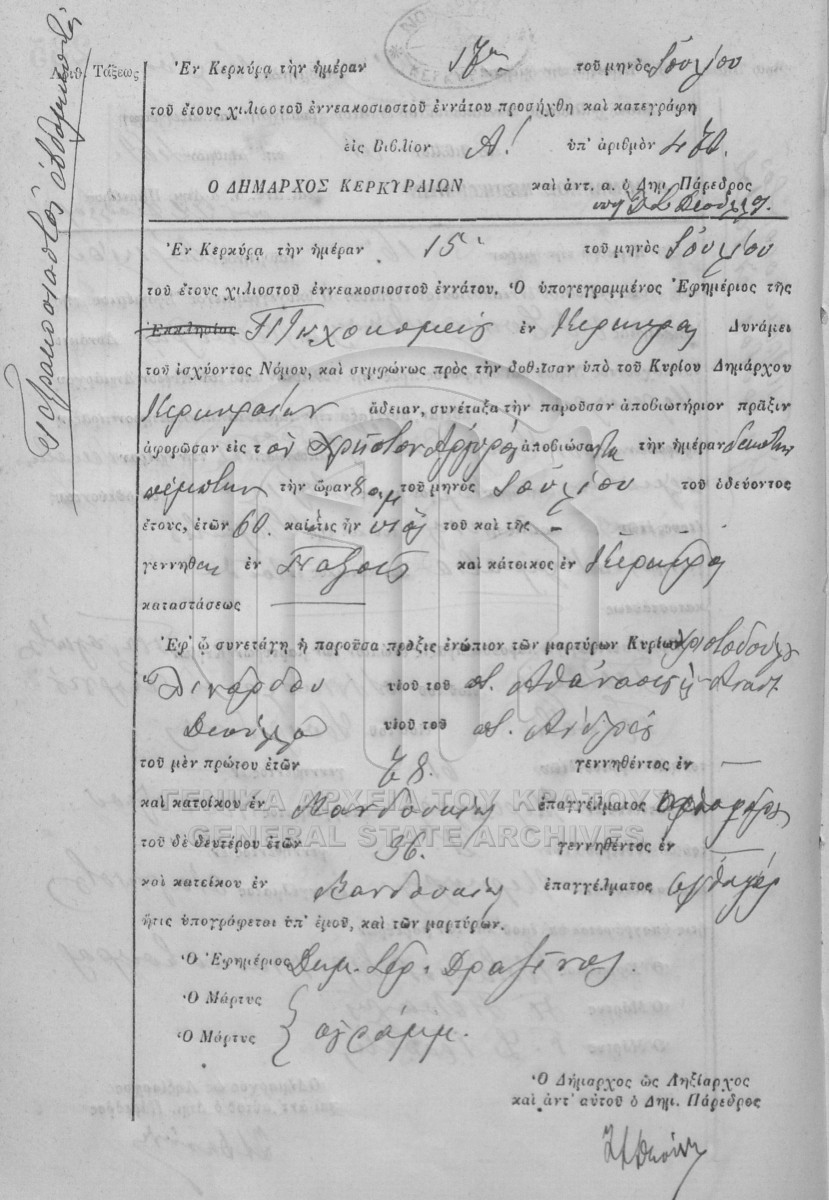 Τετρακοσιοστὸς ἑβδομηκοστὸς
Ἀριθ. Τάξεως
Ἐν Κερκύρᾳ τὴν ἡμέραν 17 τοῦ μηνὸς Ἰουλίου
τοῦ ἔτους χιλιοστοῦ ἐννεακοσιοστοῦ ἐννάτου προσήχθη καὶ κατεγράφη
εἰς Βιβλίον Α! ὑπ' ἀριθμὸν 470.
Ο ΔΗΜΑΡΧΟΣ ΚΕΡΚΥΡΑΙΩΝ καὶ ἀντ. α. ὁ Δημ. Πάρεδρος
Ἐν Κερκύρᾳ τὴν ἡμέραν 15 τοῦ μηνὸς Ἰουλίου
τοῦ ἔτους χιλιοστοῦ ἐννεακοσιοστοῦ ἐννάτου. Ὁ ὑπογεγραμμένος Ἐφημέριος τῆς
Ἐκκλησίας Πτωχοκομεῖς ἐν Κερκύρᾳ Δυνάμει
τοῦ ἰσχύοντος Νόμου, καὶ συμφώνως πρὸς τὴν δοθεῖσαν ὑπὸ τοῦ Κυρίου Δημάρχου
Κερκυραίων ἄδειαν, συνέταξα τὴν παροῦσαν ἀποβιωτήριον πρᾶξιν
ἀφορῶσαν εἰς τὸν Χρῆστον Ἀργυρὸ ἀποβιώσαντα τὴν ἡμέραν δεκάτην
πέμπτην τὴν ὥραν 8 π.μ. τοῦ μηνὸς Ἰουλίου τοῦ ὁδεύοντος
ἔτους, ἐτῶν 60. καὶ τις ἦν υἱὸς τοῦ καὶ τῆς -
γεννηθεὶς ἐν Παξοῖς καὶ κάτοικος ἐν Κερκύρᾳ
καταστάσεως
Ἐφ' ᾧ συνετάγη ἡ παροῦσα πρᾶξις ἐνώπιον τῶν μαρτύρων Κυρίων Χριστοδούλο
υἱοῦ τοῦ π. Ἀθανασίου
υἱοῦ τοῦ π. Ἀνδρέα
τοῦ μὲν πρώτου ἐτῶν 78. γεννηθέντος ἐν —
καὶ κατοίκου ἐν Μανδουκίῳ ἐπαγγέλματος
τοῦ δὲ δευτέρου ἐτῶν 36. γεννηθέντος ἐν —
καὶ κατοίκου ἐν Μανδουκίῳ ἐπαγγέλματος
ἥτις ὑπογράφεται ὑπ' ἐμοῦ, καὶ τῶν μαρτύρων.
Ὁ Ἐφημέριος Δημ. Ἱερ. Δραζίνος.
Ὁ Μάρτυς
Ὁ Μάρτυς } ἀγράμμ.
Ὁ Δήμαρχος ὡς Ληξίαρχος
καὶ ἀντ' αὐτοῦ ὁ Δημ. Πάρεδρος
ΓΕΝΙΚΑ ΑΡΧΕΙΑ ΤΟΥ ΚΡΑΤΟΥΣ
GENERAL STATE ARCHIVES